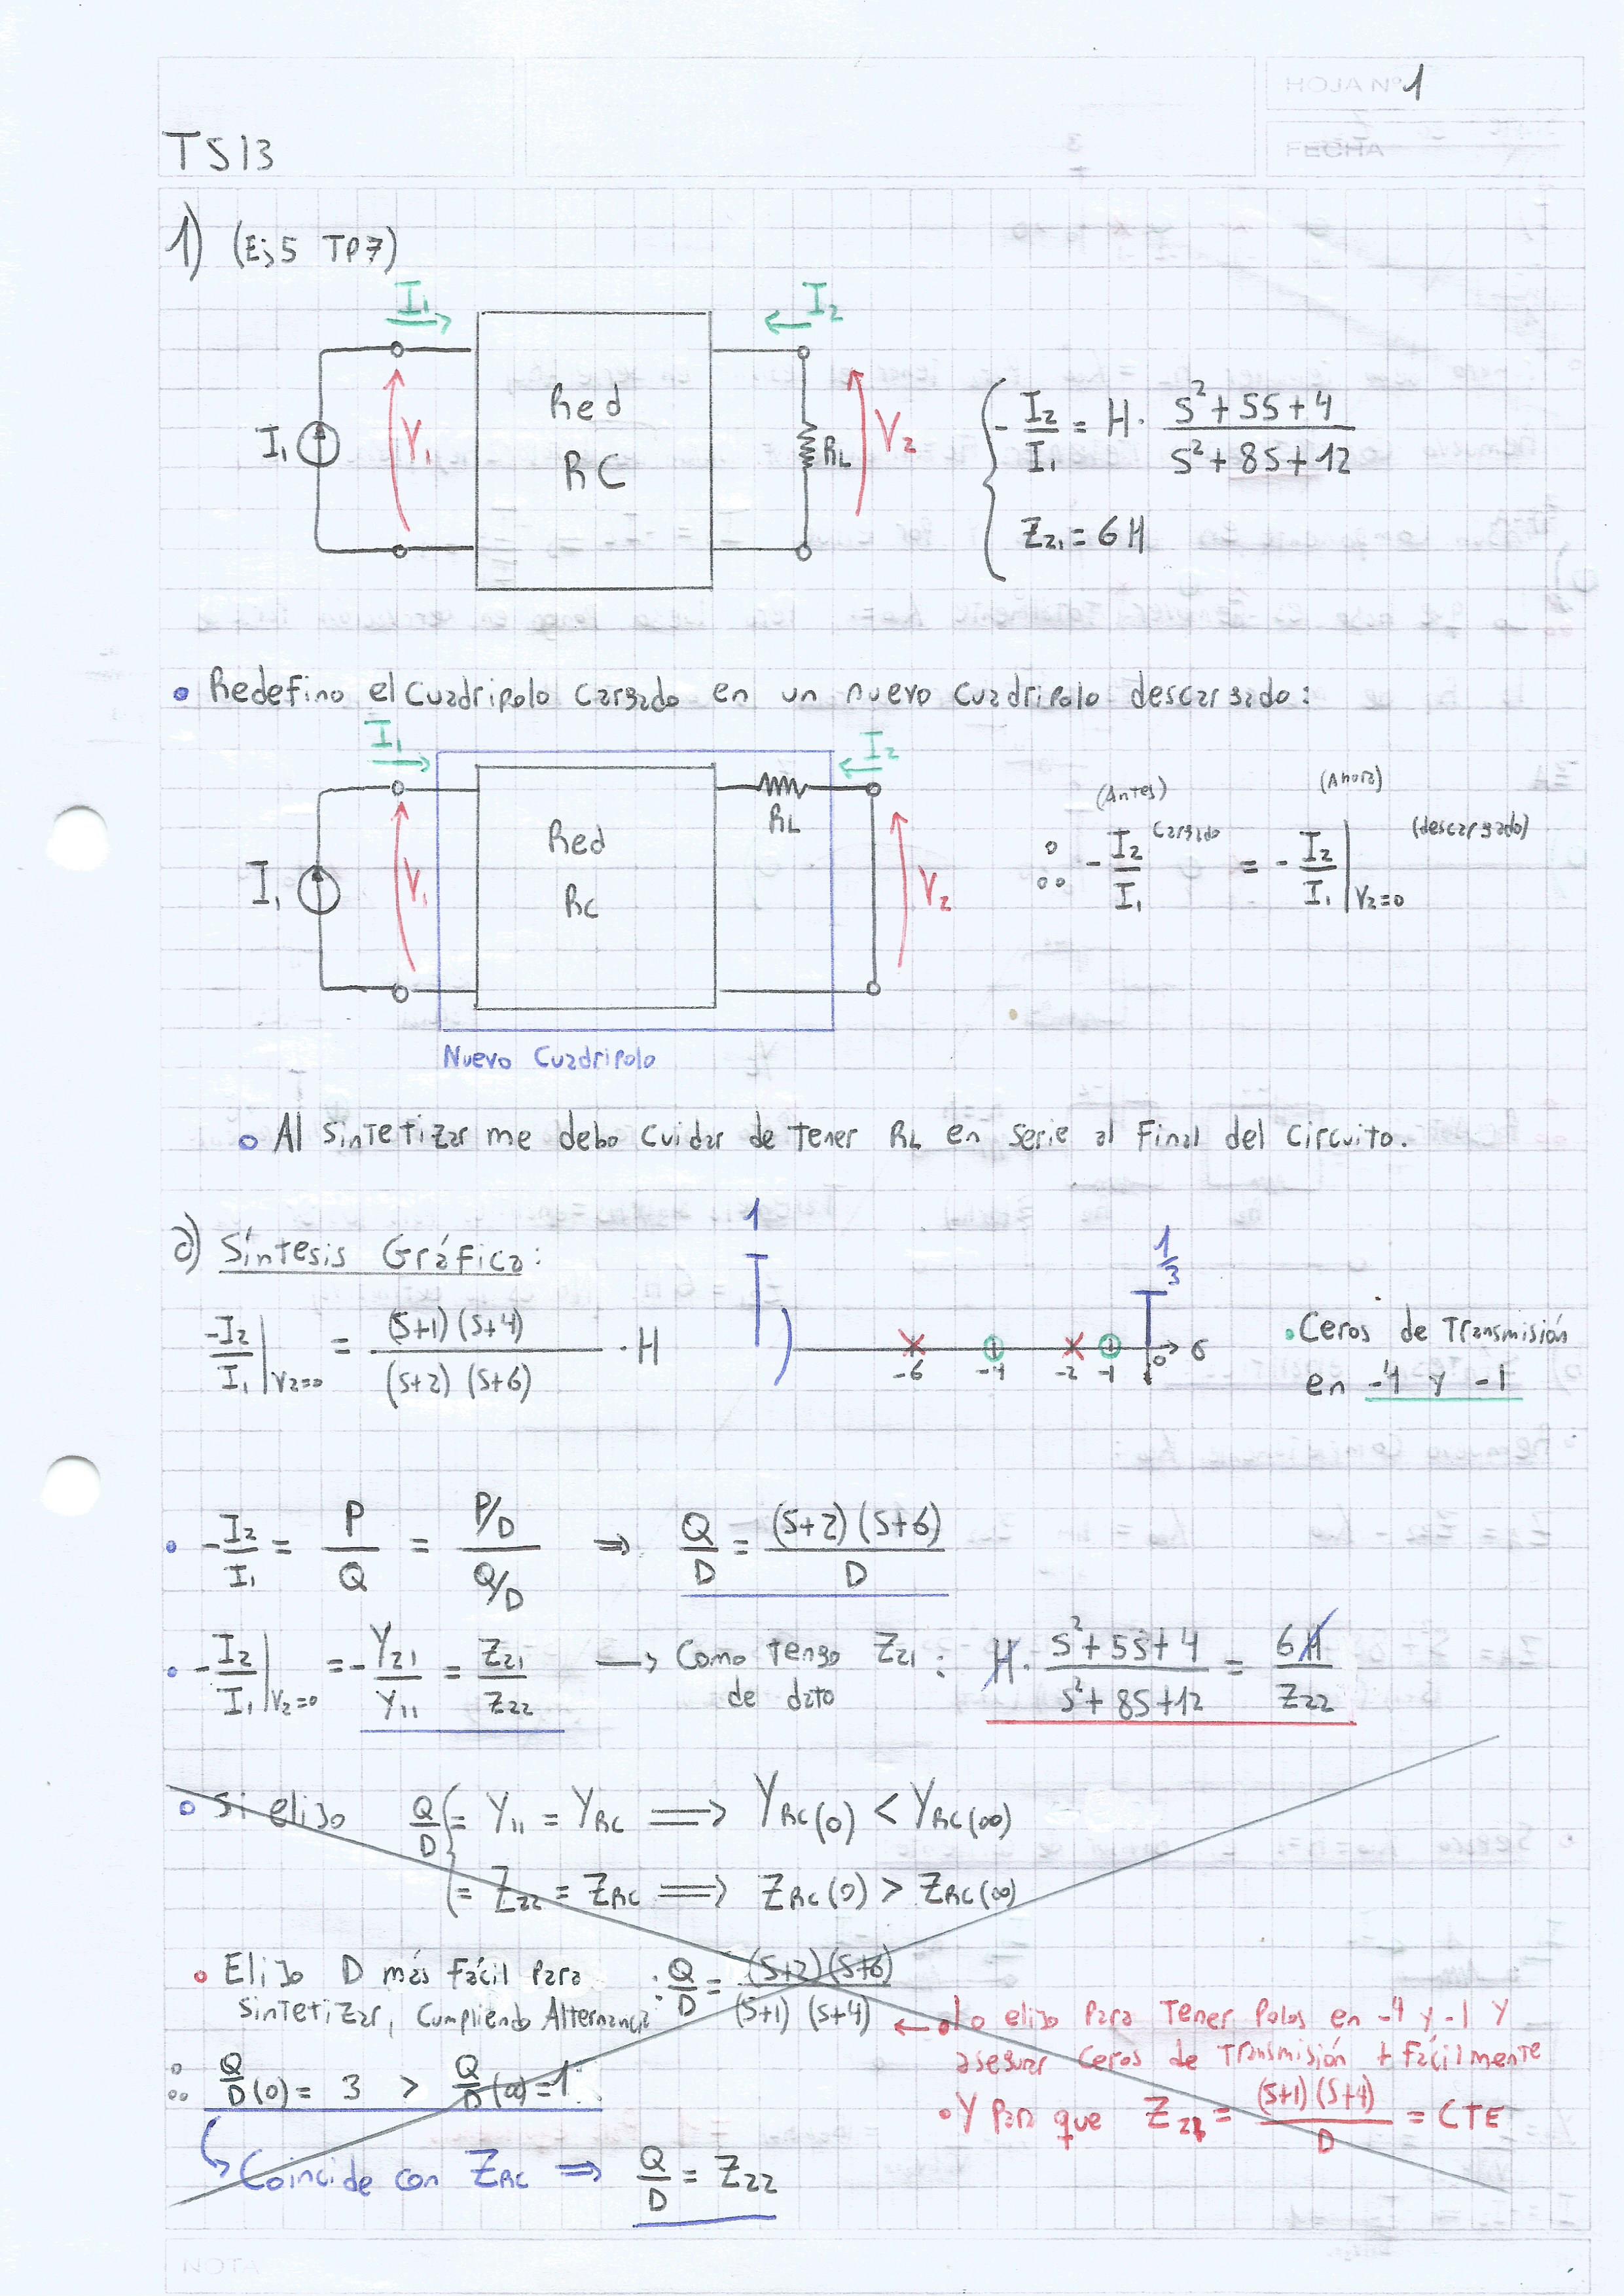 HOJA Nº 1
FECHA
TS13
1) (Ej5 TP7)
I₁
I₂
I₁
V₁
Red
RC
RL
V₂
-I₂/I₁ = H · (s²+5s+4)/(s²+8s+12)
Z₂₁ = 6H
• Redefino el cuadripolo cargado en un nuevo cuadripolo descargado:
I₁
I₂
I₁
V₁
Red
RC
RL
V₂
(Antes) (Ahora)
∴ -I₂/I₁ cargado = -I₂/I₁ |V₂=0 (descargado)
Nuevo Cuadripolo
• Al sintetizar me debo cuidar de tener RL en serie al final del circuito.
a) Síntesis Gráfica:
1
1/3
-I₂/I₁ |V₂=0 = (s+1)(s+4)/(s+2)(s+6) · H
-6 -4 -2 -1 0 σ
• Ceros de Transmisión
en -4 y -1
• -I₂/I₁ = P/Q = (P/D)/(Q/D) ⇒ Q/D = (s+2)(s+6)/D
• -I₂/I₁ |V₂=0 = -Y₂₁/Y₁₁ = Z₂₁/Z₂₂ → Como tengo Z₂₁ de dato : H · (s²+5s+4)/(s²+8s+12) = 6H/Z₂₂
• Si elijo Q/D { = Y₁₁ = YRC ⟹ YRC(0) < YRC(∞)
= Z₂₂ = ZRC ⟹ ZRC(0) > ZRC(∞)
• Elijo D más fácil para
sintetizar, cumpliendo Alternancia : Q/D = (s+2)(s+6)/(s+1)(s+4)
← • Lo elijo para tener Polos en -4 y -1 y
asegurar ceros de Transmisión + fácilmente
∴ Q/D(0) = 3 > Q/D(∞) = 1
• Y para que Z₂₁ = (s+1)(s+4)/D = CTE
↳ Coincide con ZRC ⟹ Q/D = Z₂₂